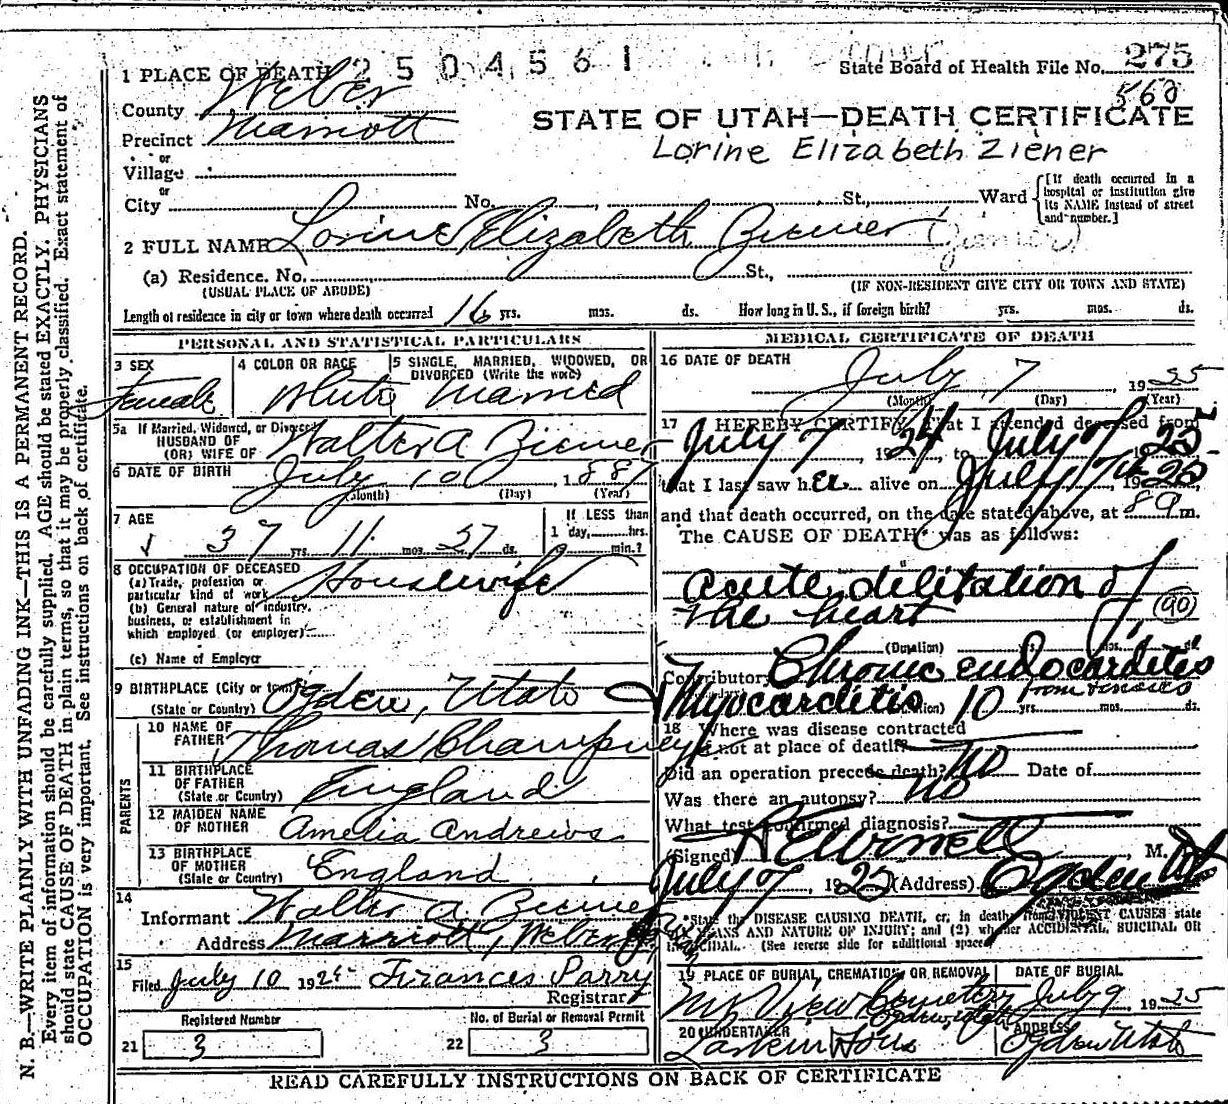 2504561
State Board of Health File No. 275
560
1 PLACE OF DEATH
County Weber
Precinct Marriott
or
Village
or
City No. St., Ward
[If death occurred in a hospital or institution give its NAME instead of street and number.]
STATE OF UTAH—DEATH CERTIFICATE
Lorine Elizabeth Ziener
2 FULL NAME Lorine Elizabeth Ziener (Ziener)
(a) Residence. No. St.,
(USUAL PLACE OF ABODE) (IF NON-RESIDENT GIVE CITY OR TOWN AND STATE)
Length of residence in city or town where death occurred 16 yrs. mos. ds. How long in U. S., if foreign birth? yrs. mos. ds.
PERSONAL AND STATISTICAL PARTICULARS
3 SEX
Female
4 COLOR OR RACE
White
5 SINGLE, MARRIED, WIDOWED, OR
DIVORCED (Write the word)
Married
5a If Married, Widowed, or Divorced
HUSBAND OF
(OR) WIFE OF Walter A Ziener
6 DATE OF BIRTH July 10 1887
(Month) (Day) (Year)
7 AGE
37 yrs. 11 mos. 27 ds.
If LESS than
1 day, hrs.
min.?
8 OCCUPATION OF DECEASED
(a) Trade, profession or
particular kind of work Housewife
(b) General nature of industry,
business, or establishment in
which employed (or employer)
(c) Name of Employer
9 BIRTHPLACE (City or town)
(State or Country) Ogden, Utah
PARENTS
10 NAME OF
FATHER Thomas Champney
11 BIRTHPLACE
OF FATHER
(State or Country) England
12 MAIDEN NAME
OF MOTHER Amelia Andrews
13 BIRTHPLACE
OF MOTHER
(State or Country) England
14
Informant Walter A Ziener
Address Marriott, Weber
15
Filed July 10 1925 Frances Parry
Registrar
Registered Number
21 3
No. of Burial or Removal Permit
22 3
MEDICAL CERTIFICATE OF DEATH
16 DATE OF DEATH
July 7, 1925
(Month) (Day) (Year)
17 I HEREBY CERTIFY, that I attended deceased from
July 7, 1924, to July 7 25
that I last saw her alive on July 7th 1925,
and that death occurred, on the date stated above, at 8 9 m.
The CAUSE OF DEATH* was as follows:
Acute dilitation of
the heart
90
(Duration) yrs. mos. ds.
Contributory Chronic endocarditis
& Myocarditis (Duration) 10 yrs. mos. ds.
18 Where was disease contracted
if not at place of death?
Did an operation precede death? No Date of
Was there an autopsy? No
What test confirmed diagnosis?
(Signed) M.
July 7, 1925 (Address) Ogden Ut
*State the DISEASE CAUSING DEATH, or, in deaths from VIOLENT CAUSES state
MEANS AND NATURE OF INJURY; and (2) whether ACCIDENTAL, SUICIDAL OR
HOMICIDAL. (See reverse side for additional space)
19 PLACE OF BURIAL, CREMATION, OR REMOVAL
Mt View Cemetery
Ogden, Utah
DATE OF BURIAL
July 9, 1925
20 UNDERTAKER
Larkin & Sons
ADDRESS
Ogden Utah
READ CAREFULLY INSTRUCTIONS ON BACK OF CERTIFICATE
N. B.—WRITE PLAINLY WITH UNFADING INK—THIS IS A PERMANENT RECORD.
Every item of information should be carefully supplied. AGE should be stated EXACTLY. PHYSICIANS
should state CAUSE OF DEATH in plain terms, so that it may be properly classified. Exact statement of
OCCUPATION is very important. See instructions on back of certificate.